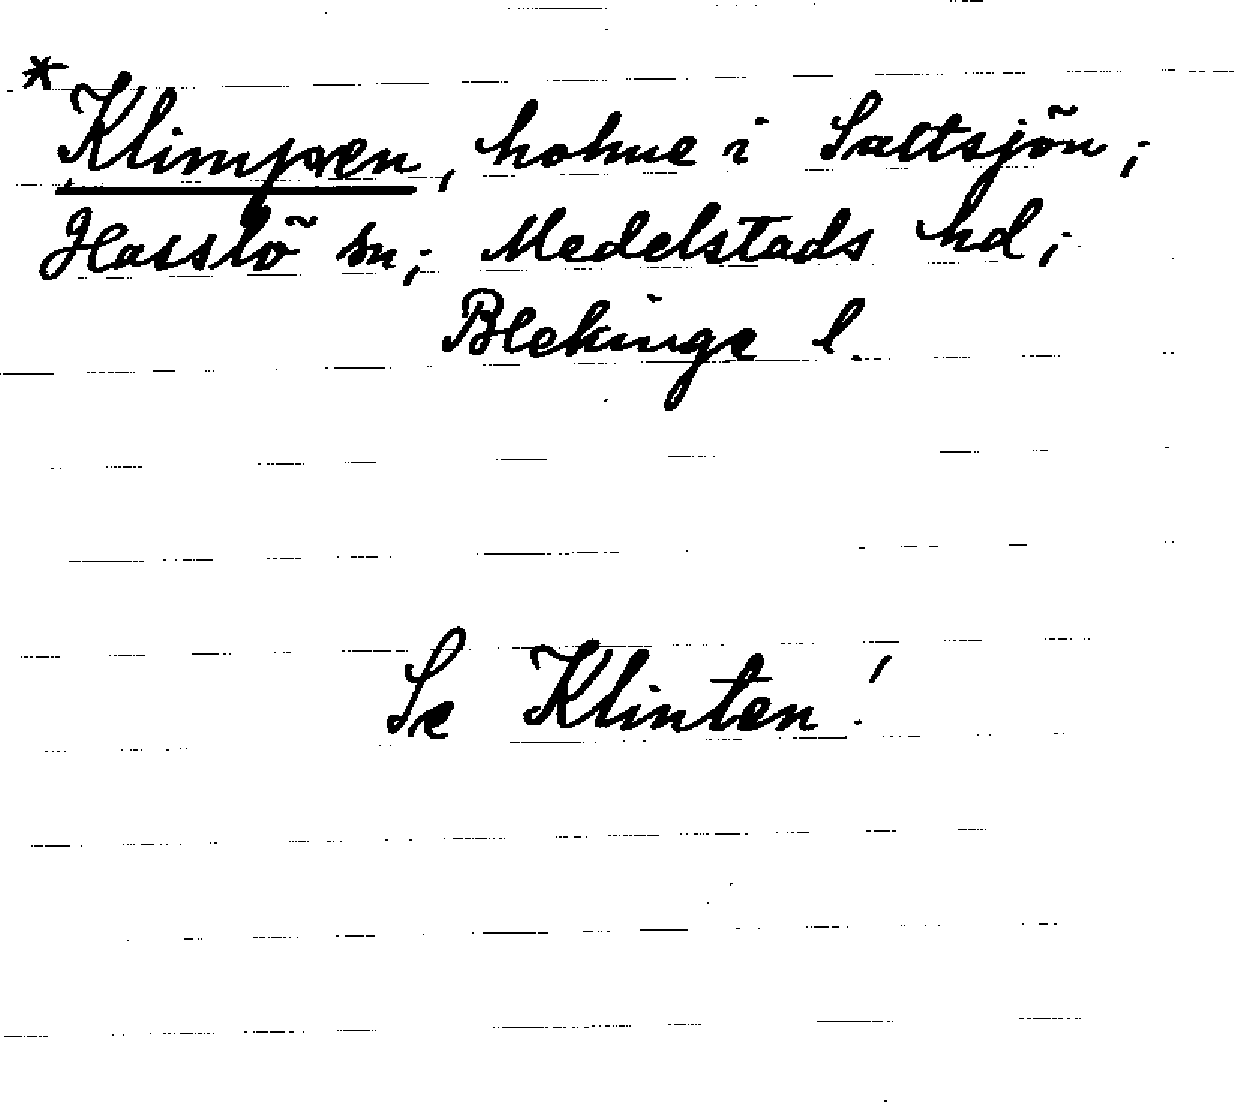 *Klimpen, holme i Saltsjön;
Hasslö sn; Medelstads hd;
Blekinge l.
Se Klinten!